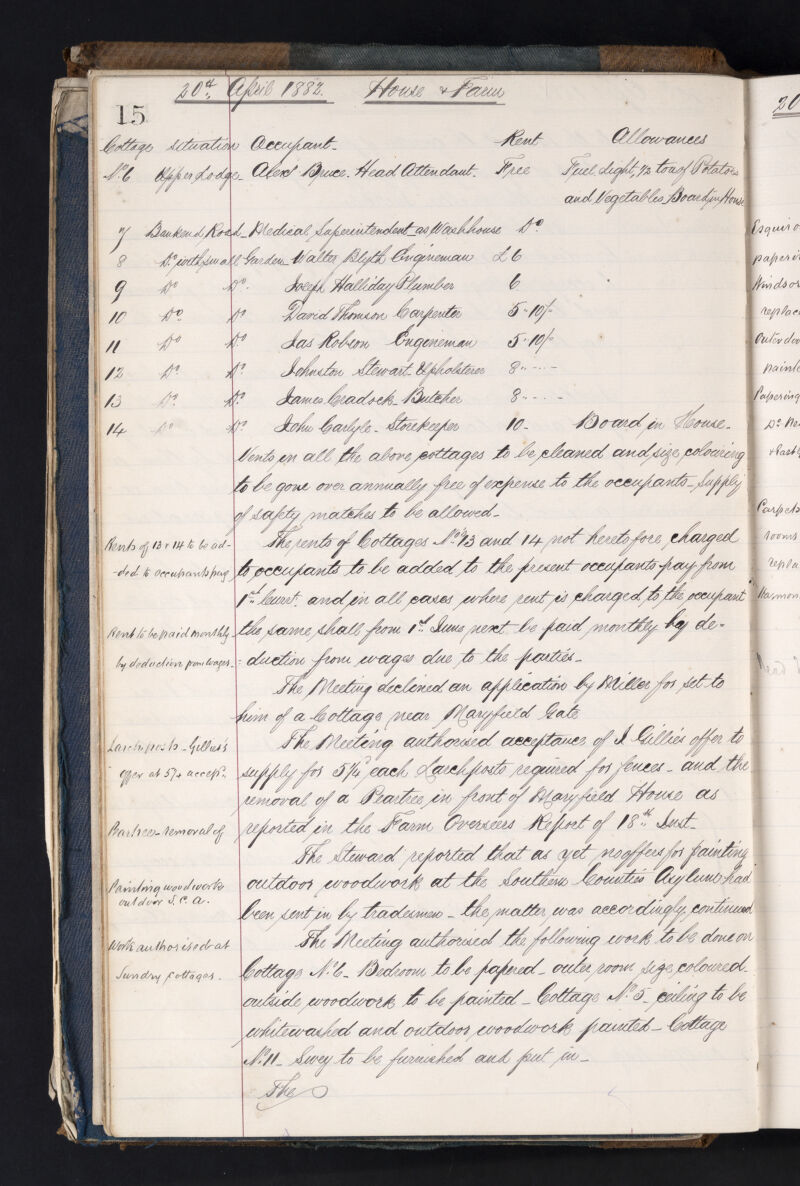 20th April 1882. House & Farm
15
Cottage situation Occupant. Rent Allowances
No. 6 Upper Lodge Alexr Bruce. Head Attendant. Free Fuel, Light, 1/2 ton of Potatoes
and Vegetables Board in House
7 Bankend Road Medical Superintendent as Washhouse Do
8 Do with small Garden Walter Blyth Engineman £6
9 Do Do Joseph Halliday Plumber 6
10 Do Do David Thomson Carpenter 5..10/-
11 Do Do Jas Robson Engineman 5..10/-
12 Do Do Johnston Stewart Upholsterer 8..
13 Do Do James Cradock Butcher 8..
14 Do Do John Carlyle Storekeeper 10. Board in House.
Vents in all the above cottages to be cleaned and size colouring
to be gone over annually free of expense to the occupants. Supply
of safety matches to be allowed.
Rents of 13 & 14 to be ad-
-ded to occupants pay
The rents of Cottages Nos. 13 and 14 not heretofore charged
to occupants to be added to the present occupants pay from
1st Curt. and in all cases where rent is charged to the occupant
Rent to be paid monthly
by deduction from wages.
the same shall from 1st June next be paid monthly by de-
-duction from wages due to the parties.
The Meeting declined an application by Miller for set to
him of a Cottage near Maryfield Gate
Larch posts - Gillies's
offer at 5 1/4 accepd.
The Meeting authorised acceptance of J Gillies offer to
supply for 5 1/4d each Larch posts required for fences - and the
removal of a Peartree in front of Maryfield House as
Peartree - removal of
reported in the Farm Overseers Report of 18th Inst.
The Steward reported that as yet no offers for painting
Painting woodwork
outdoor S. C. A.
outdoor woodwork at the Southern Counties Asylum had
been sent in by tradesmen - the matter was accordingly continued
Work authorised at
Sundry Cottages.
The Meeting authorised the following work to be done on
Cottage No. 6 - Bedroom to be papered - outer room size coloured -
outside woodwork to be painted - Cottage No. 5 - ceiling to be
whitewashed and outdoor woodwork painted - Cottage
No. 11 - Swey to be furnished and put in -
The
20
Papering
Carpets
rooms